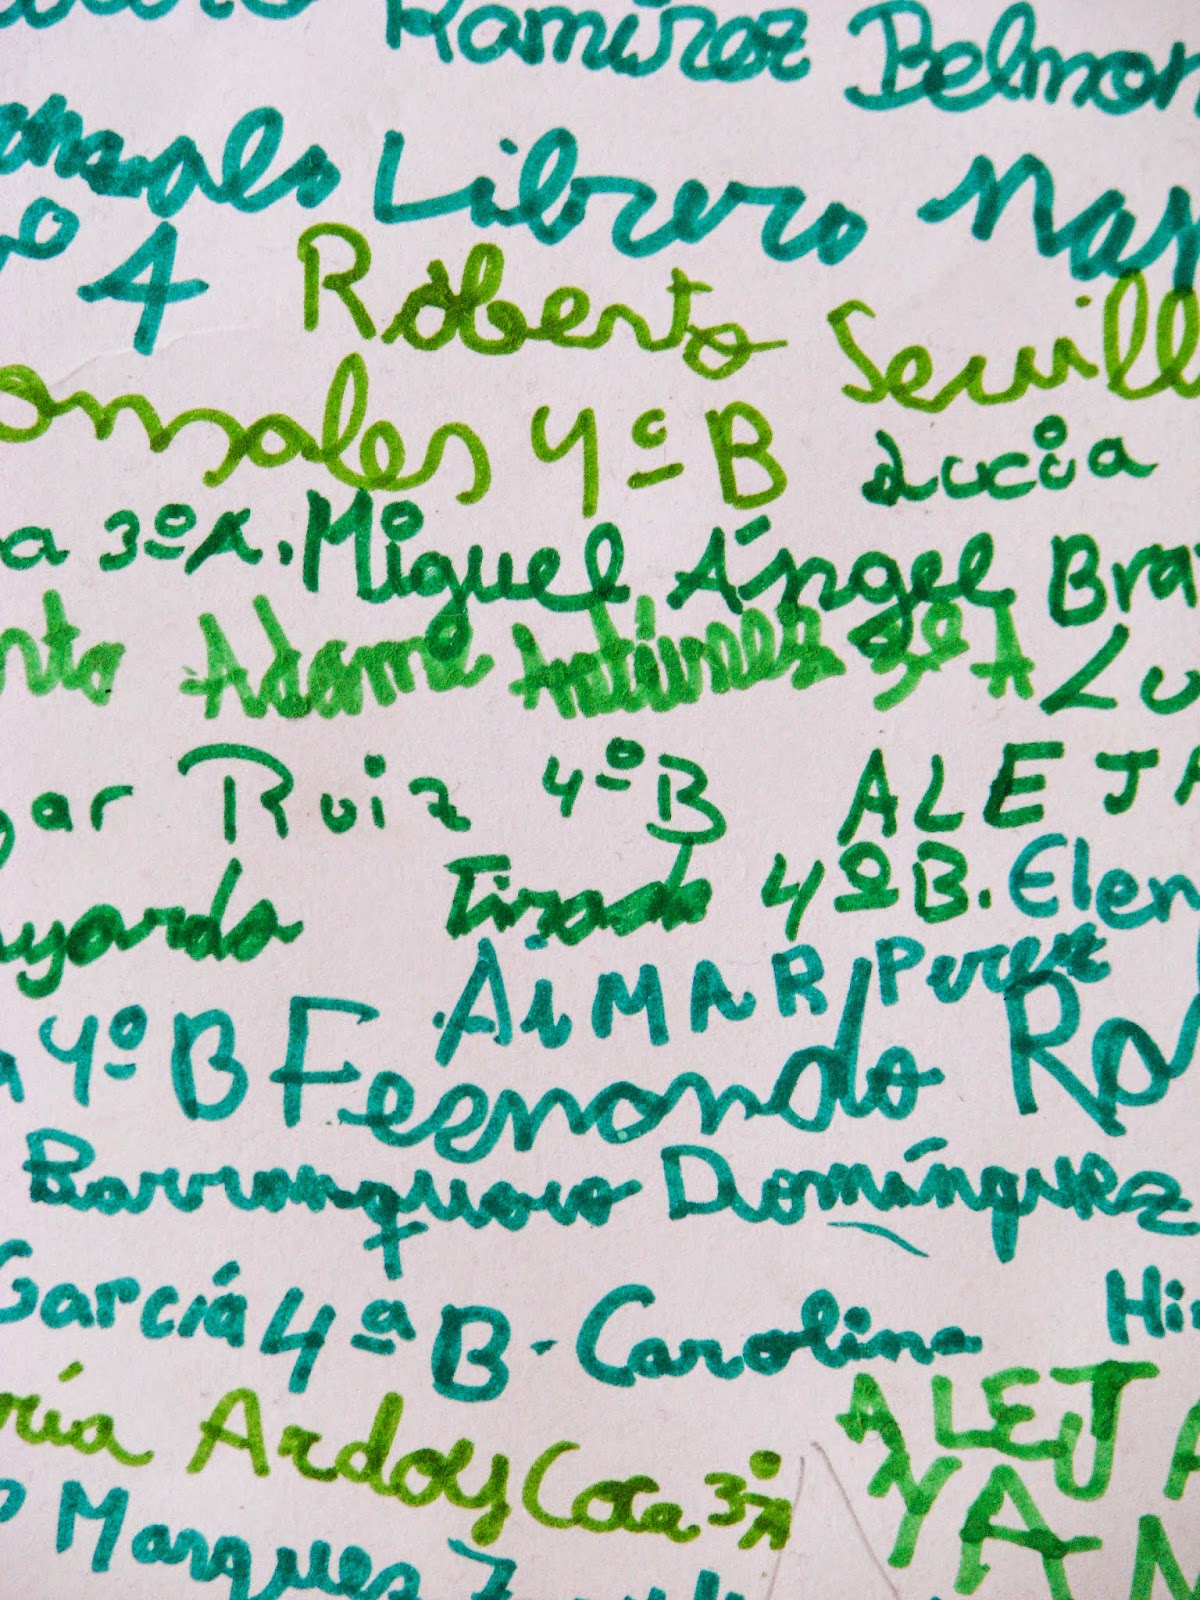 Ramírez Belmon
onzalo Librero Nar
º 4 Roberto Sevill
onzales 4º B Lucía
a 3ºA. Miguel Ángel Bra
rto Adame Antúnez 3º A Lu
gar Ruiz 4ºB ALEJA
yardo Tirado 4ºB. Elen
AiMAR Perez
4ºB Fernando Ro
Barranquero Domínguez
García 4ªB - Carolina Hi
ría Ardoy Cota 3ºA ALEJA
Marquez YA